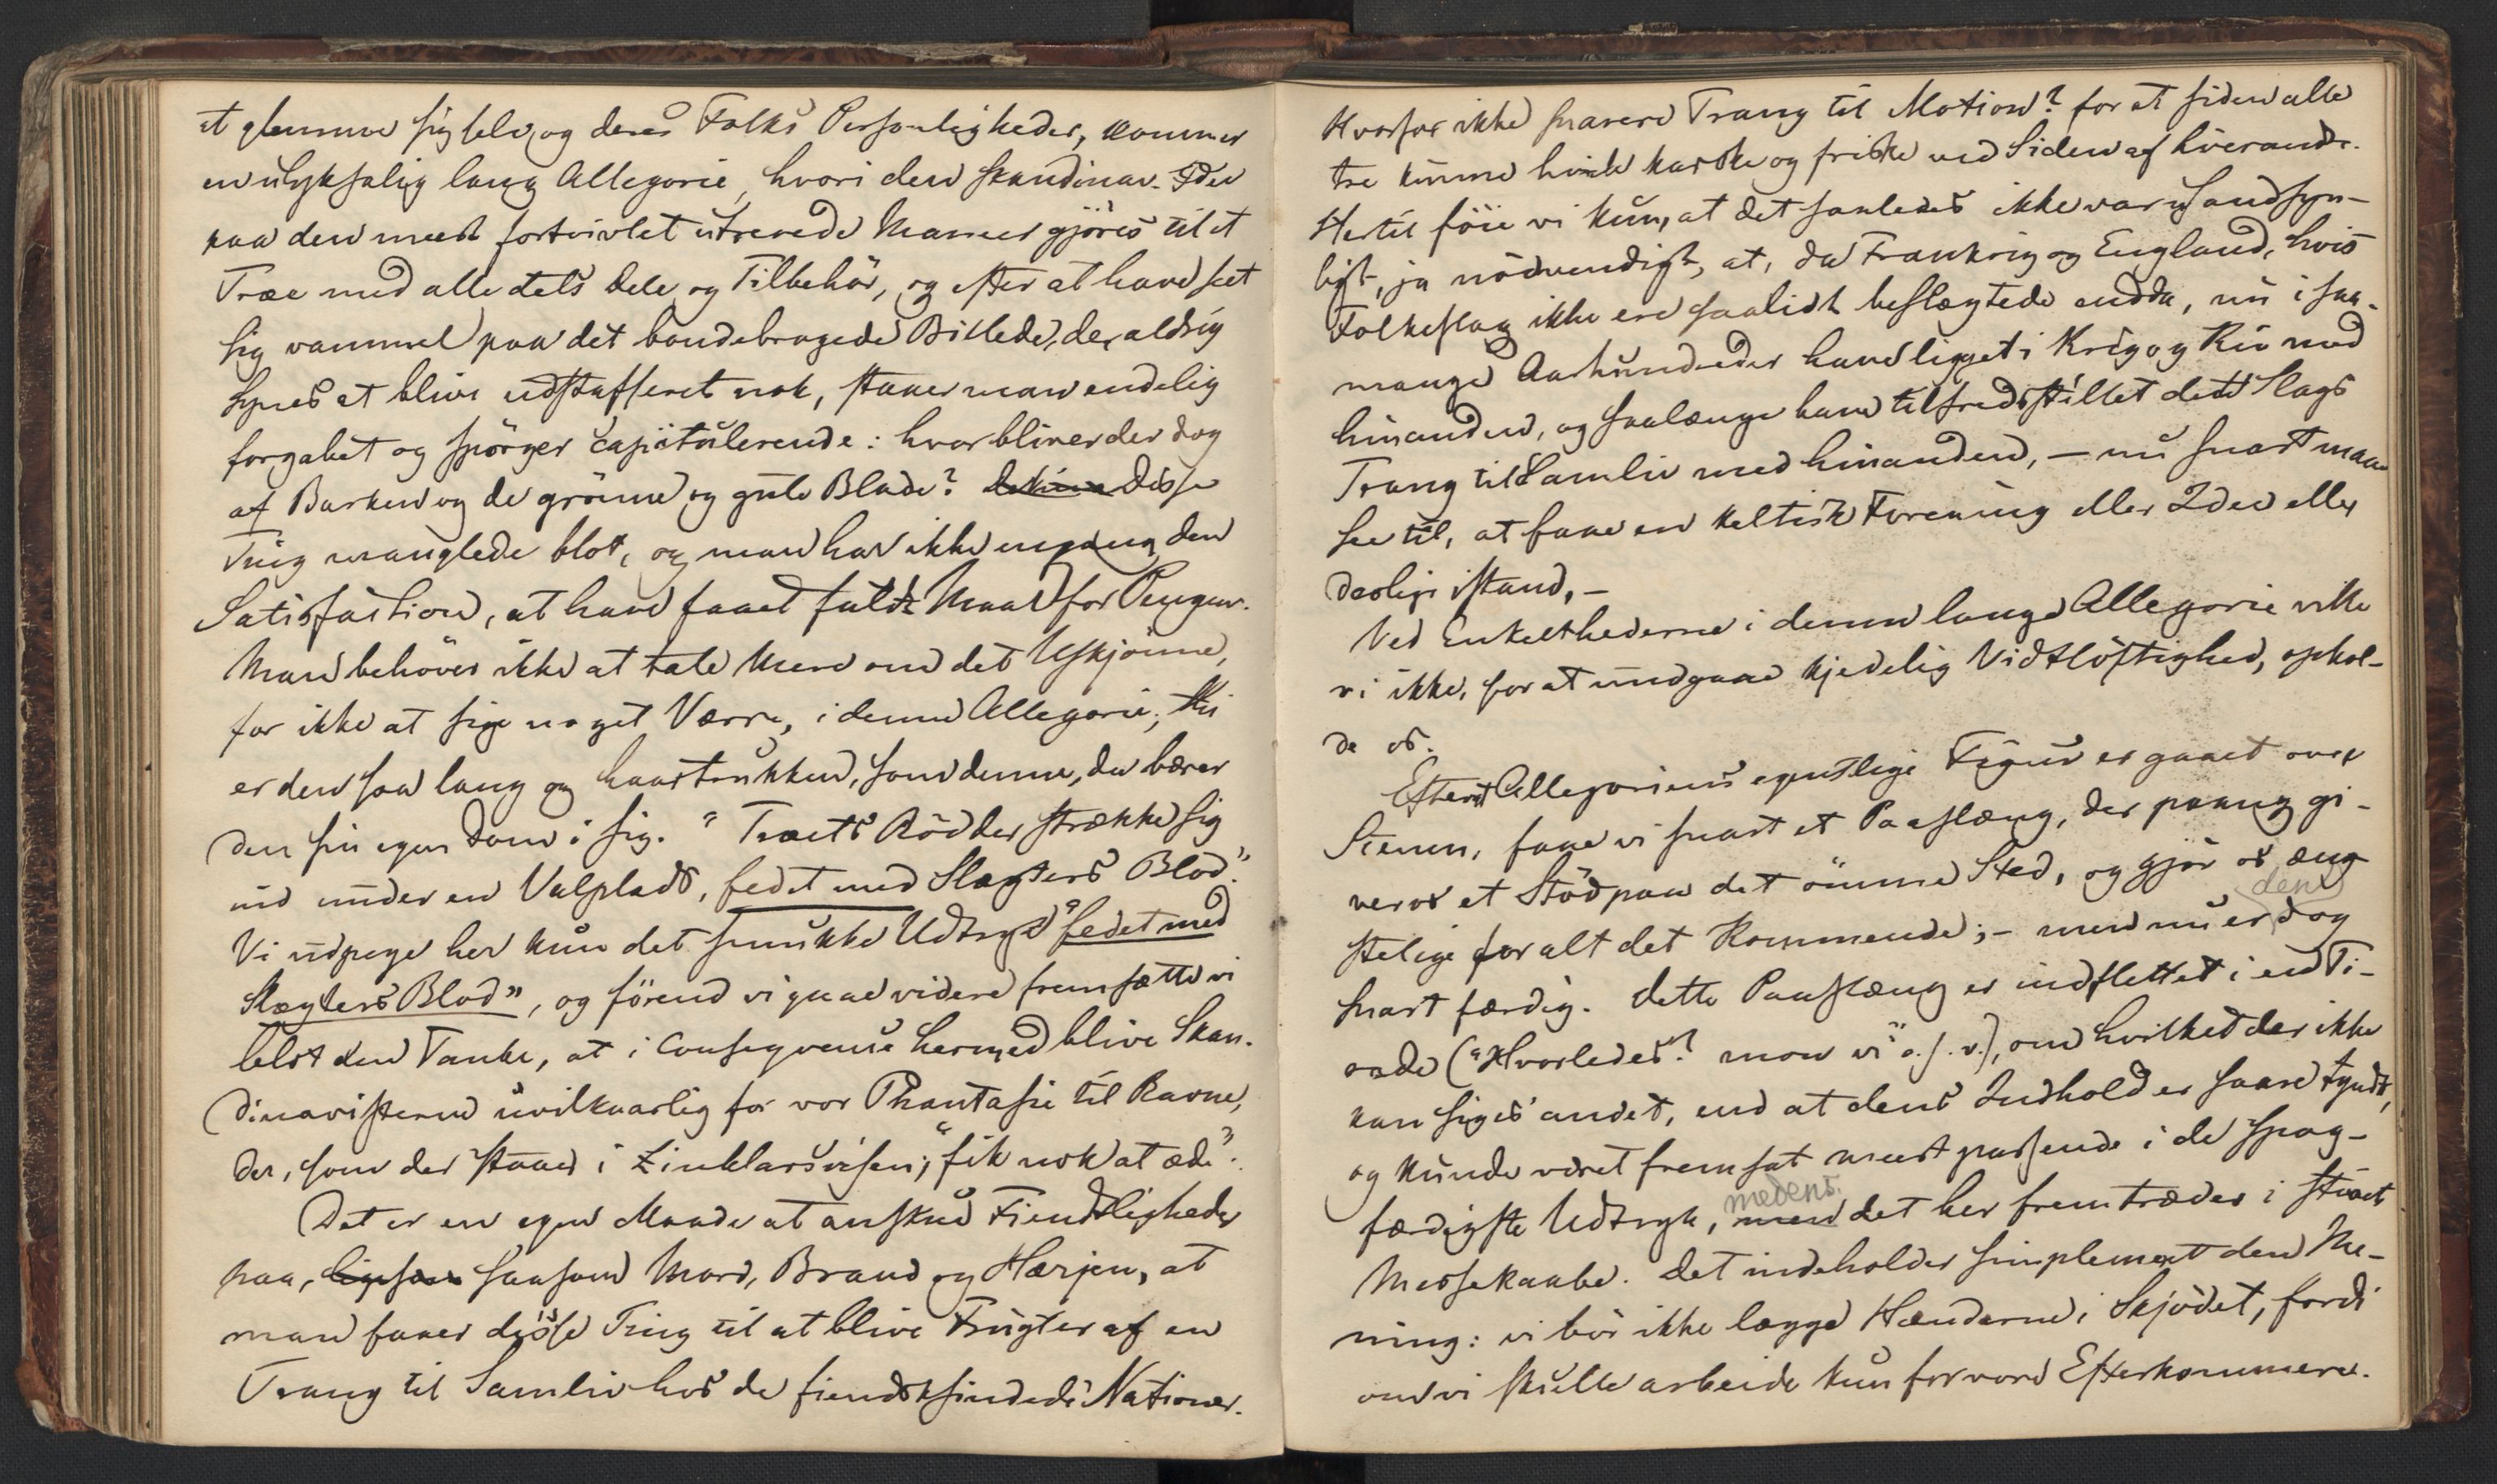 at glemme sig selv og deres Folks Personligheder, kommer
en ulyksalig lang Allegorie, hvori den skandinav. Idee
paa den meest fortvivlet utrerede Maneer gjöres til et
Træe med alle dets Dele og Tilbehör, og efter at have seet
sig vammel paa det bondebrogede Billede, der aldrig
synes at blive udstafferet nok, staaer man endelig
forgabet og spörger capitulerende: hvor bliver der dog
af Barken og de grönne og gule Blade? Disse
Ting manglede blot, og man har ikke engang den
Satisfaction, at have faaet fuldt Maal for Pengene.
Man behöver ikke at tale mere om det Uskjönne,
for ikke at sige noget Værre, i denne Allegorie; thi
er den saa lang og haartrukken, som denne, da bærer
den sin egen Dom i sig. "Træets Rödder strække sig
ind under en Valplads, fedet med Slagters Blod."
Vi udpege her kun det smukke Udtryk "fedet med
Slægters Blod", og förend vi gaae videre fremsætte vi
blot den Tanke, at i Conseqvense hermed blive Skan-
dinavisterne uvilkaarlig for vor Phantasie til Ravne,
der, som der staaer i Zinklarsvisen, "fik nok at æde".
Det er en egen Maade at anskue Fiendtligheder
paa, saasom Mord, Brand og Hærjen, at
man faaer disse Ting til at blive Frugter af en
Trang til Samliv hos de fiendsksindede Nationer.
Hvorfor ikke snarere Trang til Motion? for at siden alle
tre kunne hvile karske og friske ved Siden af hverandre.
Hertil föie vi kun, at det saaledes ikke var usandsyn-
ligt, ja nödvendigt, at, da Frankrig og England, hvis
Folkeslag ikke ere saalidt beslægtede endda, nu i saa-
mange Aarhundreder have ligget i Krig og Kiv med
hinanden, og saalænge have tilfredsstillet dette Slags
Trang til Samliv med hinanden, — nu snart maae
see til, at faae en keltisk Forening eller Idee eller
desligt istand, —
Ved Enkelthederne i denne lange Allegorie ville
vi ikke, for at undgaae kjedelig Vidtlöftighed, ophol-
de os.
Efterat Allegoriens egentlige Figur er gaaet over
Scenen, faae vi snart et Paaslæng, der paany gi-
ver os et Stöd paa det ömme Sted, og gjör os æng-
stelige for alt det Kommende; — men nu er den dog
snart færdig. Dette Paaslæng er indflettet i en Ti-
rade ("Hvorledes? mon vi" o.s.v.), om hvilket der ikke
kan siges andet, end at dens Indhold er saare tyndt,
og kunde været fremsat meest passende i de spag-
færdigste Udtryk, medens det her fremtræder i stivet
Messekaabe. Det indeholder simplement den Me-
ning: vi bör ikke lægge Hænderne i Skjödet, fordi
om vi skulle arbeide kun for vore Efterkommere.